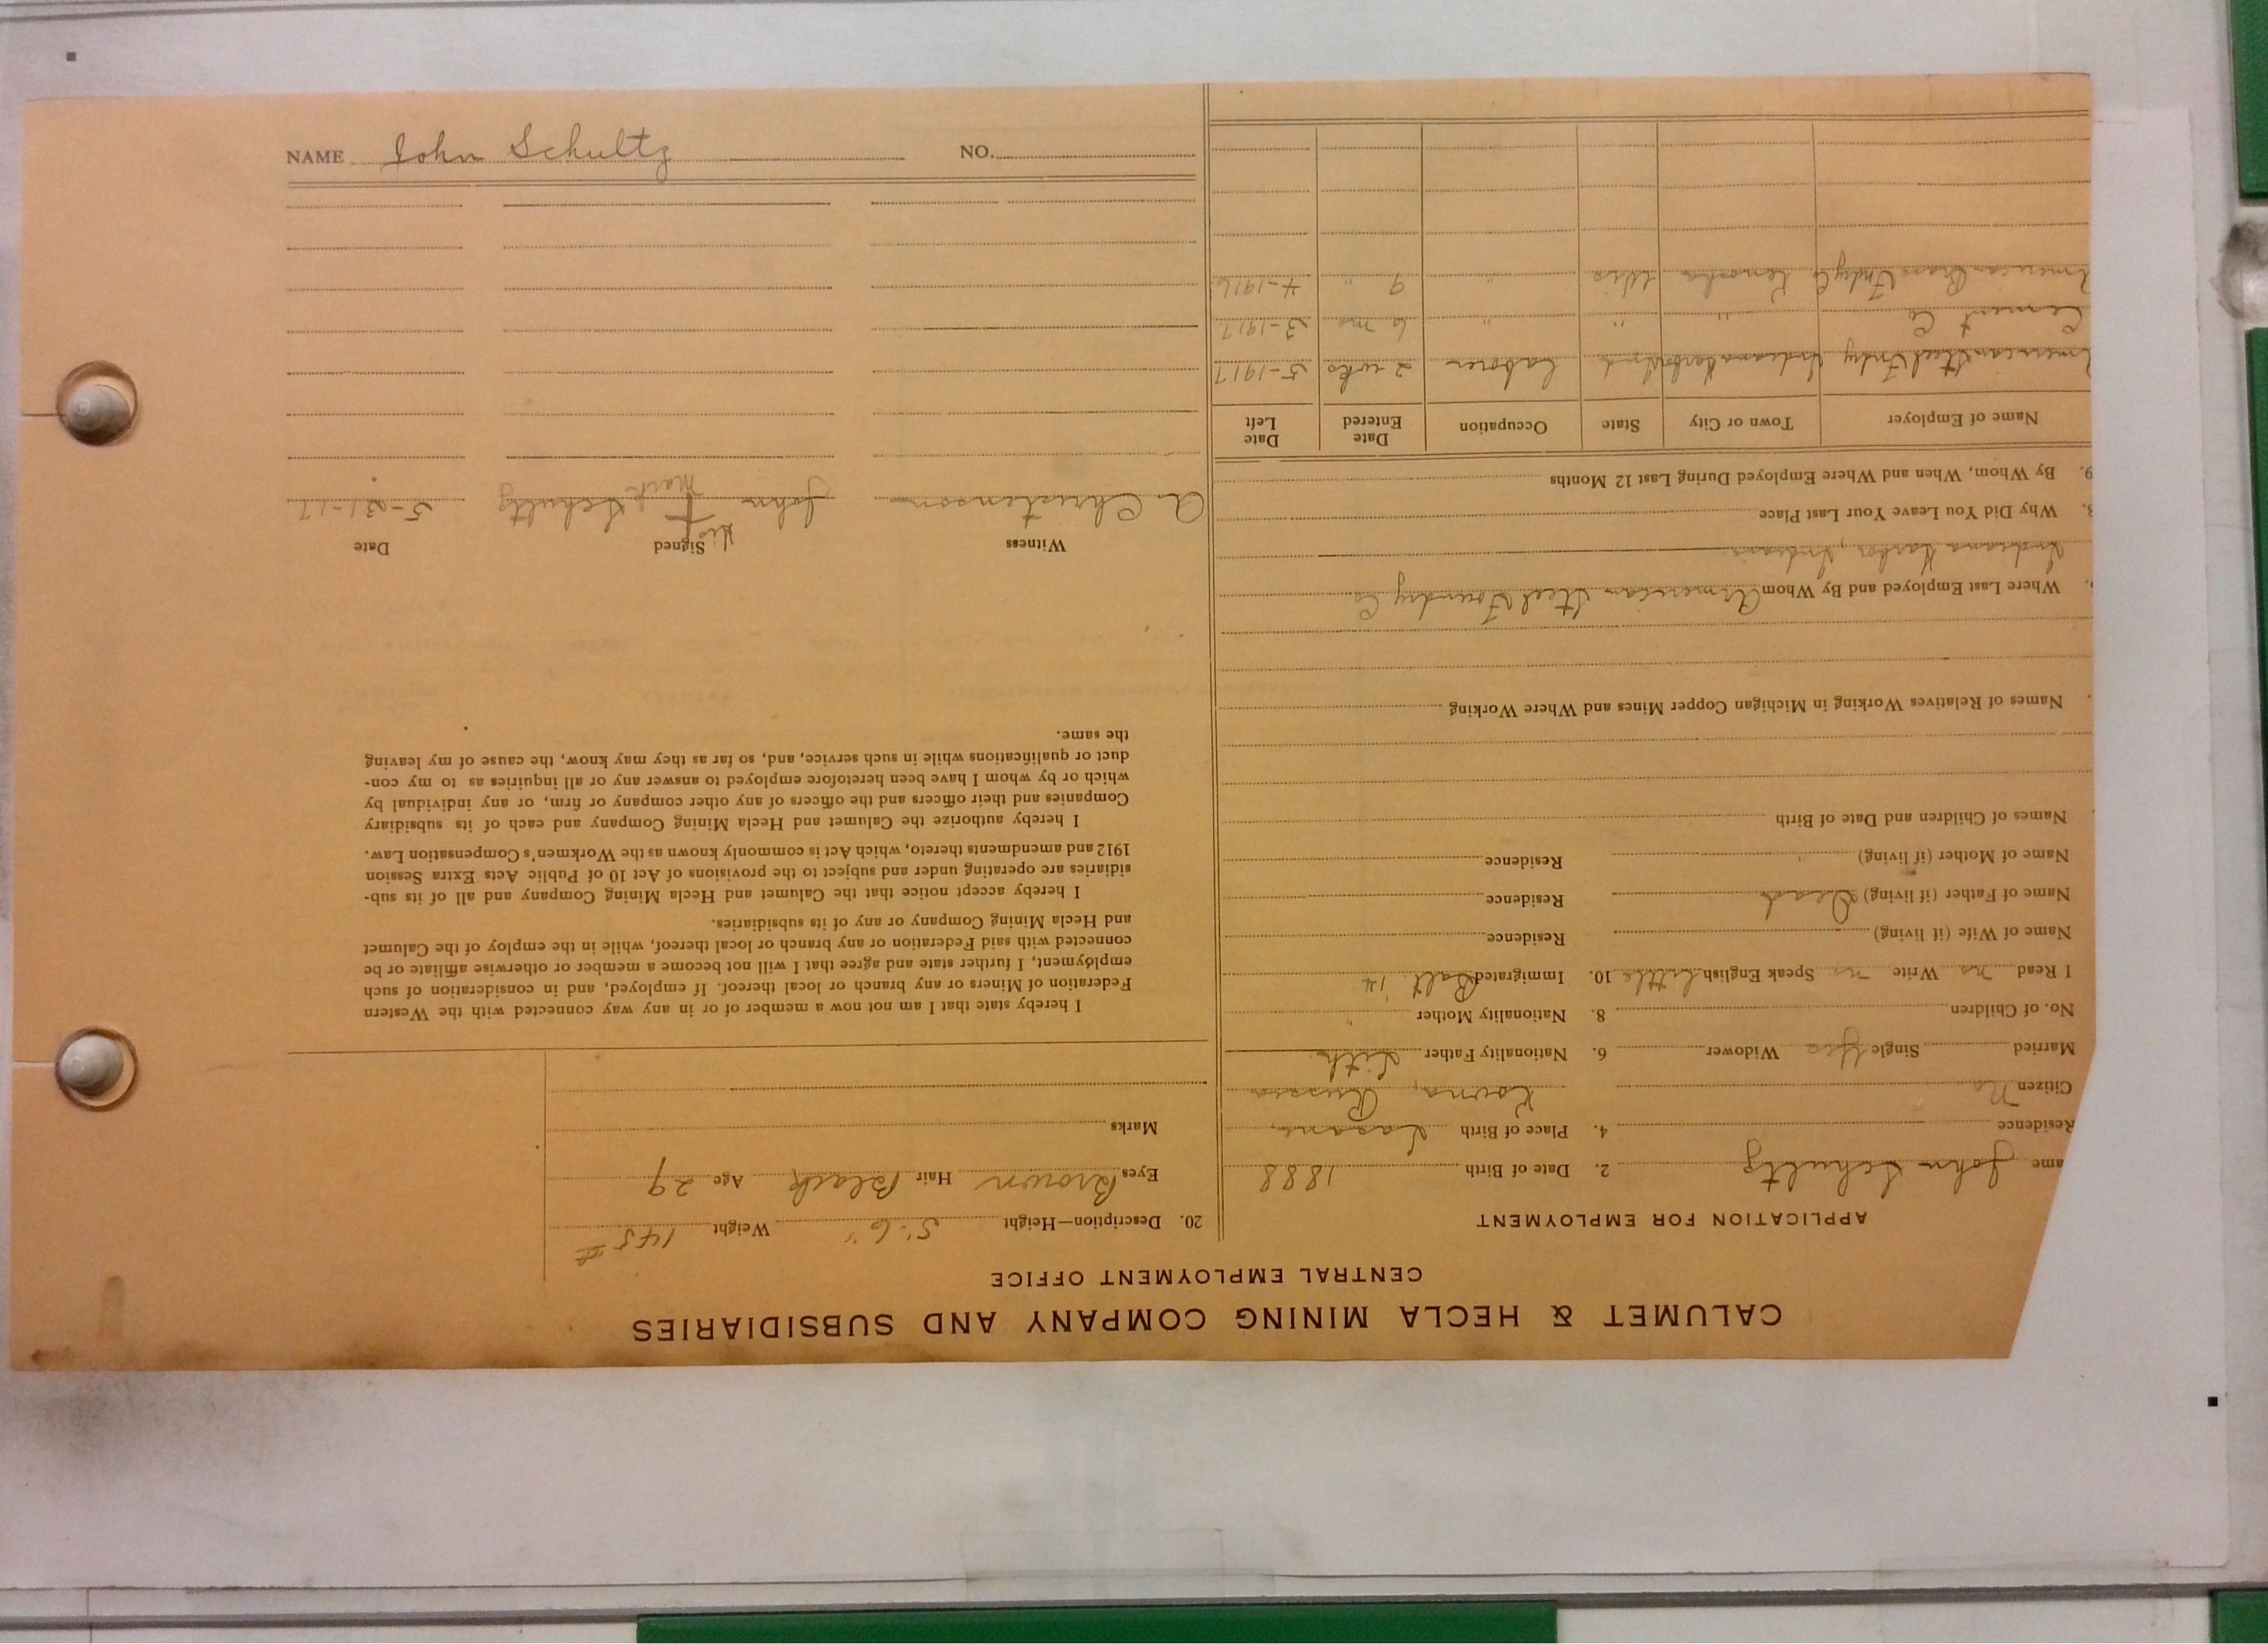 CALUMET & HECLA MINING COMPANY AND SUBSIDIARIES
CENTRAL EMPLOYMENT OFFICE
APPLICATION FOR EMPLOYMENT
ame John Schultz 2. Date of Birth 1888
Residence 4. Place of Birth
Citizen No Kovno, Russia
Married Single Yes Widower 6. Nationality Father Lith
No. of Children 8. Nationality Mother "
I Read no Write no Speak English Little 10. Immigrated Balt. 14
Name of Wife (if living) Residence
Name of Father (if living) Dead Residence
Name of Mother (if living) " Residence
Names of Children and Date of Birth
Names of Relatives Working in Michigan Copper Mines and Where Working
Where Last Employed and By Whom American Steel Foundry Co
Indiana Harbor, Indiana
8. Why Did You Leave Your Last Place
9. By Whom, When and Where Employed During Last 12 Months
Name of Employer Town or City State Occupation Date Entered Date Left
American Steel Fndry Indiana Harbor Ind Laborer 2 wks 5-1917
Cement Co " " " 6 mo 3-1917
American Brass Fndry Co Kenosha Wis " 9 " 4-1916
20. Description—Height 5' 6" Weight 145 #
Eyes Brown Hair Black Age 29
Marks
I hereby state that I am not now a member of or in any way connected with the Western
Federation of Miners or any branch or local thereof. If employed, and in consideration of such
employment, I further state and agree that I will not become a member or otherwise affiliate or be
connected with said Federation or any branch or local thereof, while in the employ of the Calumet
and Hecla Mining Company or any of its subsidiaries.
I hereby accept notice that the Calumet and Hecla Mining Company and all of its sub-
sidiaries are operating under and subject to the provisions of Act 10 of Public Acts Extra Session
1912 and amendments thereto, which Act is commonly known as the Workmen's Compensation Law.
I hereby authorize the Calumet and Hecla Mining Company and each of its subsidiary
Companies and their officers and the officers of any other company or firm, or any individual by
which or by whom I have been heretofore employed to answer any or all inquiries as to my con-
duct or qualifications while in such service, and, so far as they may know, the cause of my leaving
the same.
Witness Signed Date
His
A Christenson John + Schultz 5-31-17
Mark
NAME John Schultz NO.